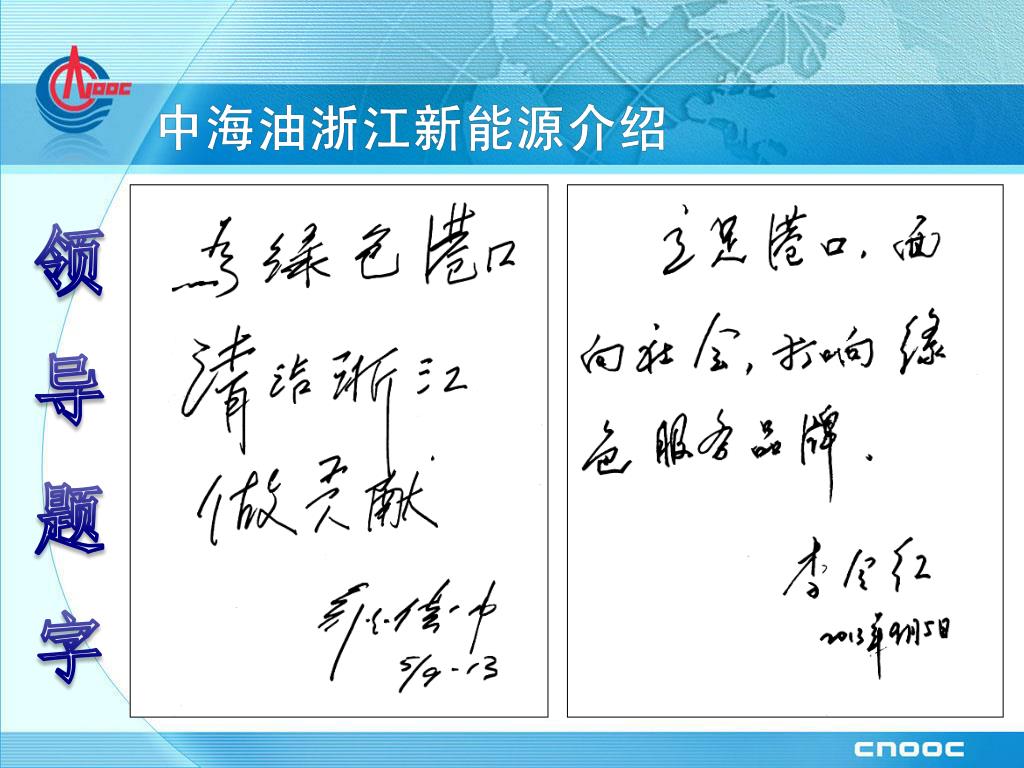 CNOOC
中海油浙江新能源介绍
领导题字
为绿色港口
清洁浙江
做贡献
5/9-13
立足港口,面
向社会,打响绿
色服务品牌.
李令红
2013年9月5日
CNOOC